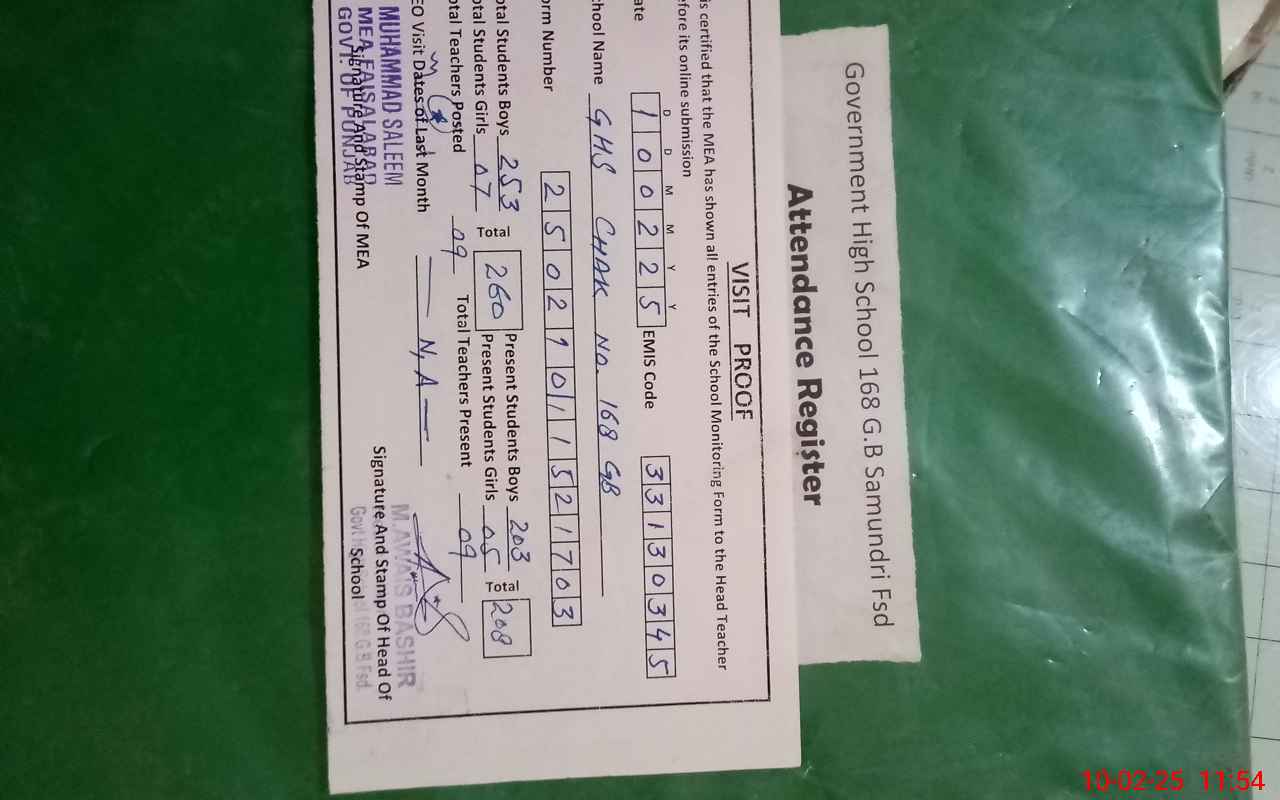 Government High School 168 G.B Samundri Fsd
Attendance Register
VISIT PROOF
is certified that the MEA has shown all entries of the School Monitoring Form to the Head Teacher
efore its online submission
D D M M Y Y
ate 1 0 0 2 2 5 EMIS Code 3 3 1 3 0 3 4 5
chool Name GHS CHAK NO. 168 GB
orm Number 2 5 0 2 1 0 1 1 5 2 1 7 0 3
otal Students Boys 253 Total 260 Present Students Boys 203 Total 208
otal Students Girls 07 Present Students Girls 05
otal Teachers Posted 09 Total Teachers Present 09
EO Visit Dates of Last Month — N,A —
MUHAMMAD SALEEM
MEA FAISALABAD
GOVT. OF PUNJAB
Signature And Stamp Of MEA
M.AWAIS BASHIR
Signature And Stamp Of Head Of
School
168 G.B Fsd.
10-02-25 11:54